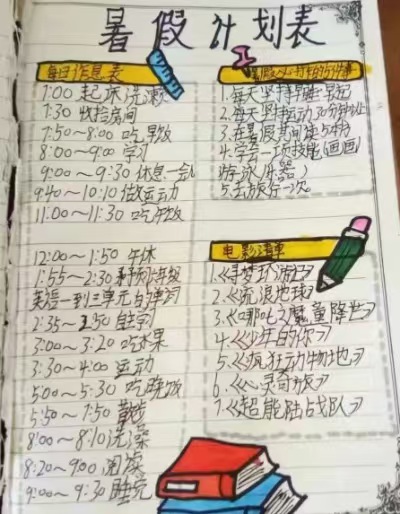 暑假计划表
每日作息表
7:00 起床洗漱
7:30 收拾房间
7:50~8:00 吃早饭
8:00~9:00 学习
9:00~9:30 休息一会儿
9:40~10:10 做运动
11:00~11:30 吃午饭
12:00~1:50 午休
1:55~2:30
英语一到三单元的单词
2:35~2:50 自学
3:00~3:20 吃水果
3:30~4:00 运动
5:00~5:30 吃晚饭
5:50~7:50 散步
8:00~8:10 洗澡
8:20~9:00 阅读
9:00~9:30 睡觉
暑假
1.每天坚持早睡早起
2.每天坚持运动30分钟以上
3.在暑假其间读5本书
4.学会一项技能(画画)
游泳(乐器)
5.去旅行一次
电影清单
1.《寻梦环游记》
2.《流浪地球》
3.《哪吒之魔童降世》
4.《少年的你》
5.《疯狂动物地》
6.《心灵奇旅》
7.《超能陆战队》